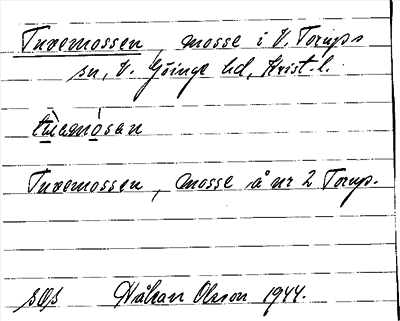 Tuvemossen, mosse i V. Torups
sn, V. Göinge hd, Krist. l.
Tuvemossen, mosse å nr 2 Torup.
sOs Håkan Olsson 1944.